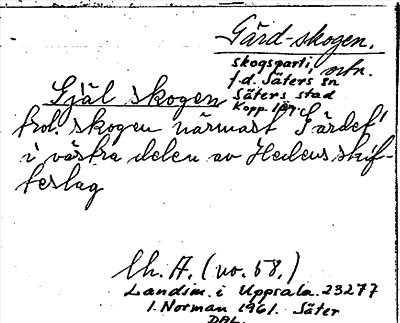 Gärd-skogen.
skogsparti, ortn.
f.d. Säters sn
Säters stad
Kopp. län.
Själ skogen
trol. skogen närmast "Gärdet"
i västra delen av Hedens skif-
teslag
Uh. A. (no. 58.)
Landsm. i Uppsala. 23277
I. Norman 1961. Säter
DAL.